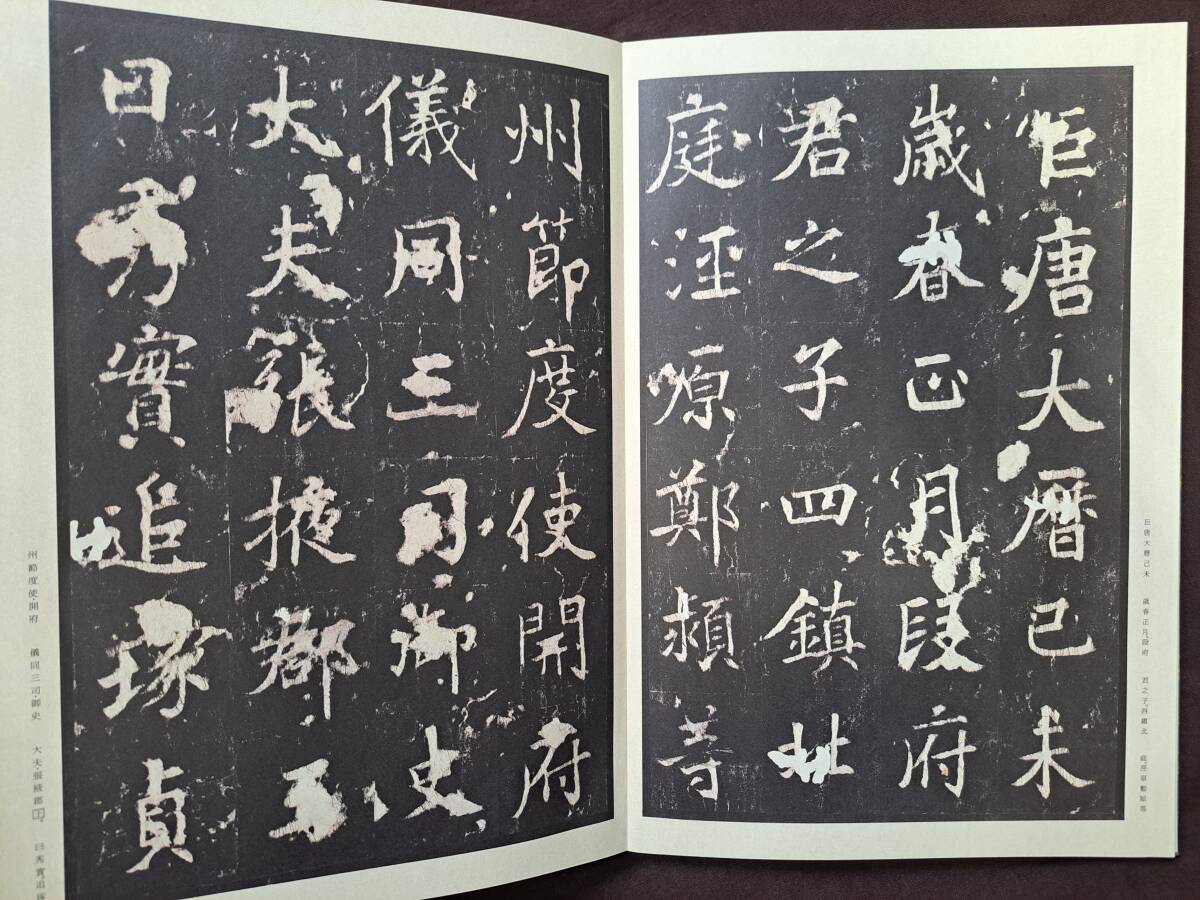 巨唐大曆己未
歲春正月段府
君之子四鎮北
庭涇原鄭頻等
州節度使開府
儀同三司御史
大夫張掖郡王
曰秀實追琢貞
巨唐大曆己未 歲春正月段府 君之子四鎮北 庭涇原鄭頻等
州節度使開府 儀同三司御史 大夫張掖郡王 曰秀實追琢